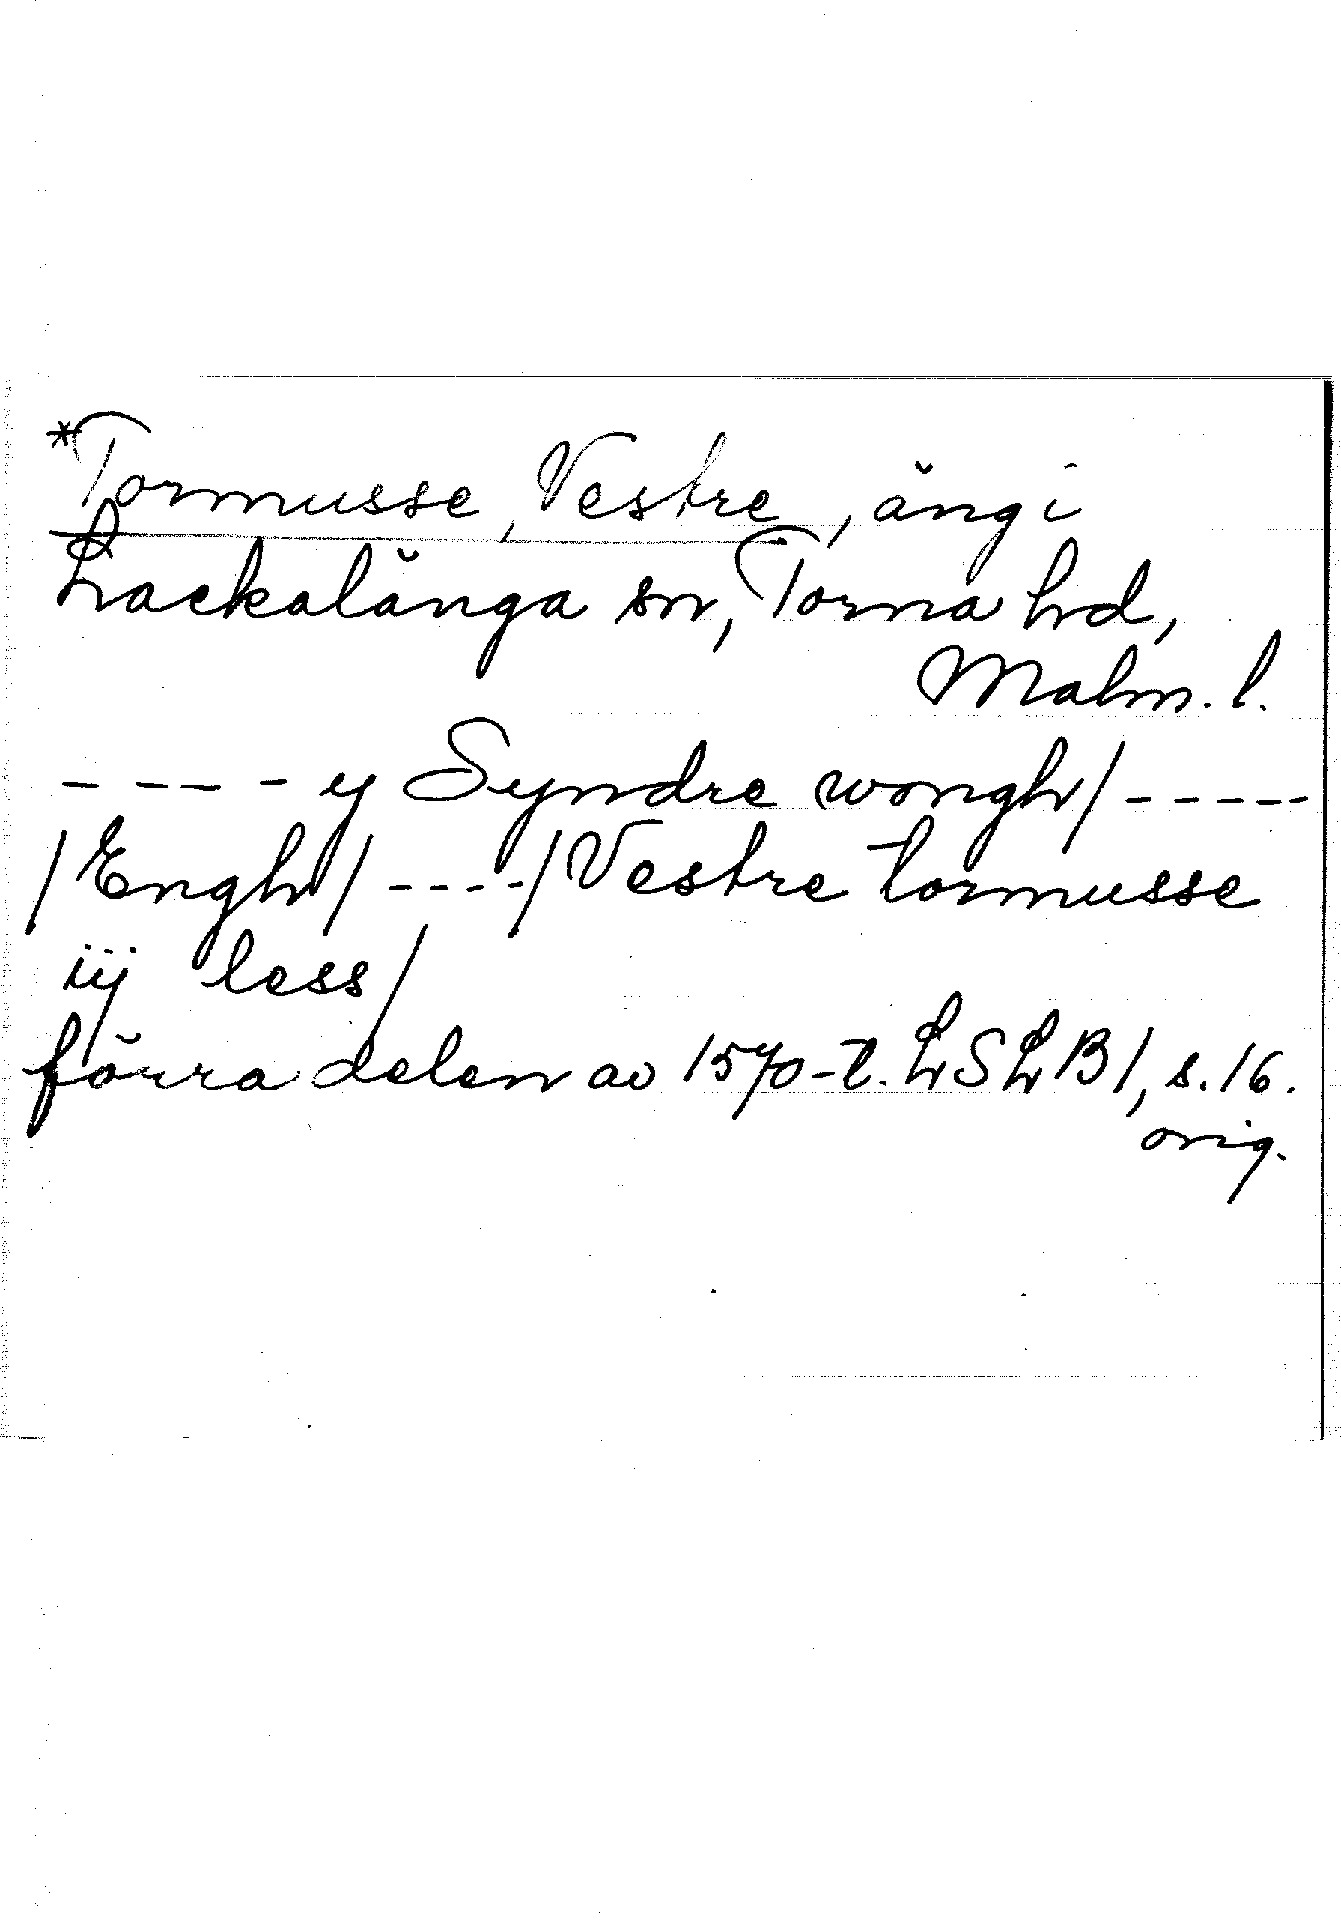 *Tormusse, Vestre, äng i
Lackalänga sn, Torna hd,
Malm. l.
- - - - y Syndre wongh/ - - - - -
/Engh/ - - - - /Vestre tormusse
iij less/
förra delen av 1570-t. LSLB 1, s. 16.
orig.